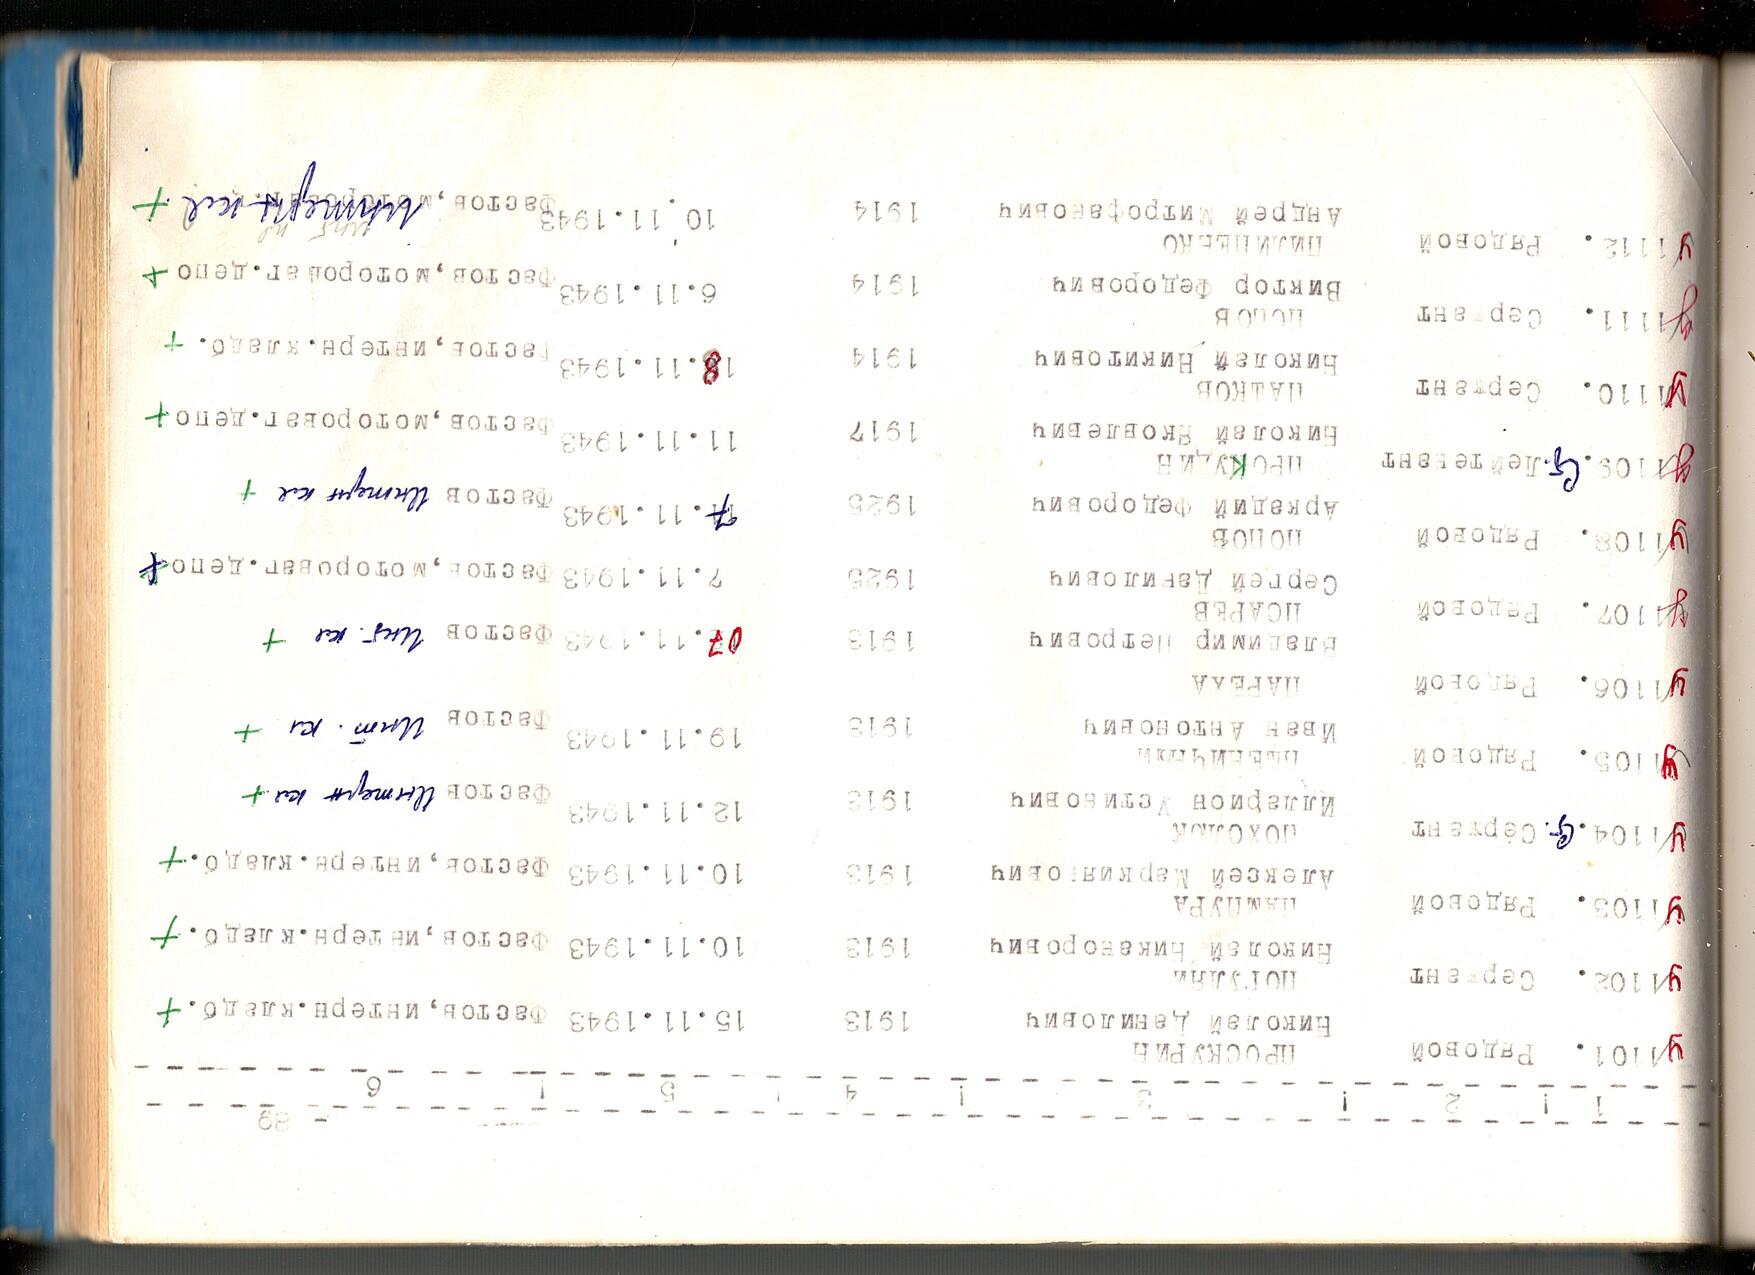 - 89
1 ! 2 ! 3 ! 4 ! 5 ! 6
У 1101. Рядовой ПРОСКУРИН
Николай Данилович 1913 15.11.1943 Фастов,интерн.кладб. +
У 1102. Сержант ПОГУЛЯЙ
Николай Никанорович 1913 10.11.1943 Фастов,интерн.кладб. +
У 1103. Рядовой ПАМПУРА
Алексей Маркиянович 1913 10.11.1943 Фастов,интерн.кладб. +
У 1104. С. Сержант ПОХОЛОК
Илларион Устинович 1913 12.11.1943 Фастов Интерн кл +
У 1105. Рядовой ПШЕНИЧНЫЙ
Иван Антонович 1913 19.11.1943 Фастов Инт. кл +
У 1106. Рядовой
Владимир Петрович 1913 07.11.1943 Фастов Инт. кл +
У 1107. Рядовой ПИСАРЕВ
Сергей Данилович 1925 7.11.1943 Фастов,моторваг.депо +
У 1108. Рядовой ПОПОВ
Аркадий Федорович 1925 11.1943 Фастов Интерн кл +
У 1109. С. Лейтенант ПРОКУДИН
Николай Яковлевич 1917 11.11.1943 Фастов,моторваг.депо +
У 1110. Сержант ПАТКОВ
Николай Никитович 1914 18.11.1943 Фастов,интерн.кладб. +
У 1111. Сержант ПОПОВ
Виктор Федорович 1914 6.11.1943 Фастов,моторваг.депо +
У 1112. Рядовой ПИЛИПЕНКО
Андрей Митрофанович 1914 10.11.1943 Фастов, Интерн кл +